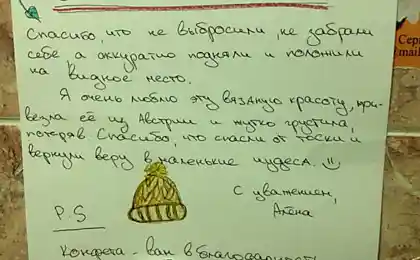 Спасибо, что не выбросили, не забрали
себе а аккуратно подняли и положили
на видное место.
Я очень люблю эту вязаную красоту, при-
везла её из Австрии и жутко грустила,
потеряв Спасибо, что спасли от тоски и
вернули веру в маленькие чудеса.
С уважением,
Алёна
P.S
Конфета - вам в благодарность
Сер
mail